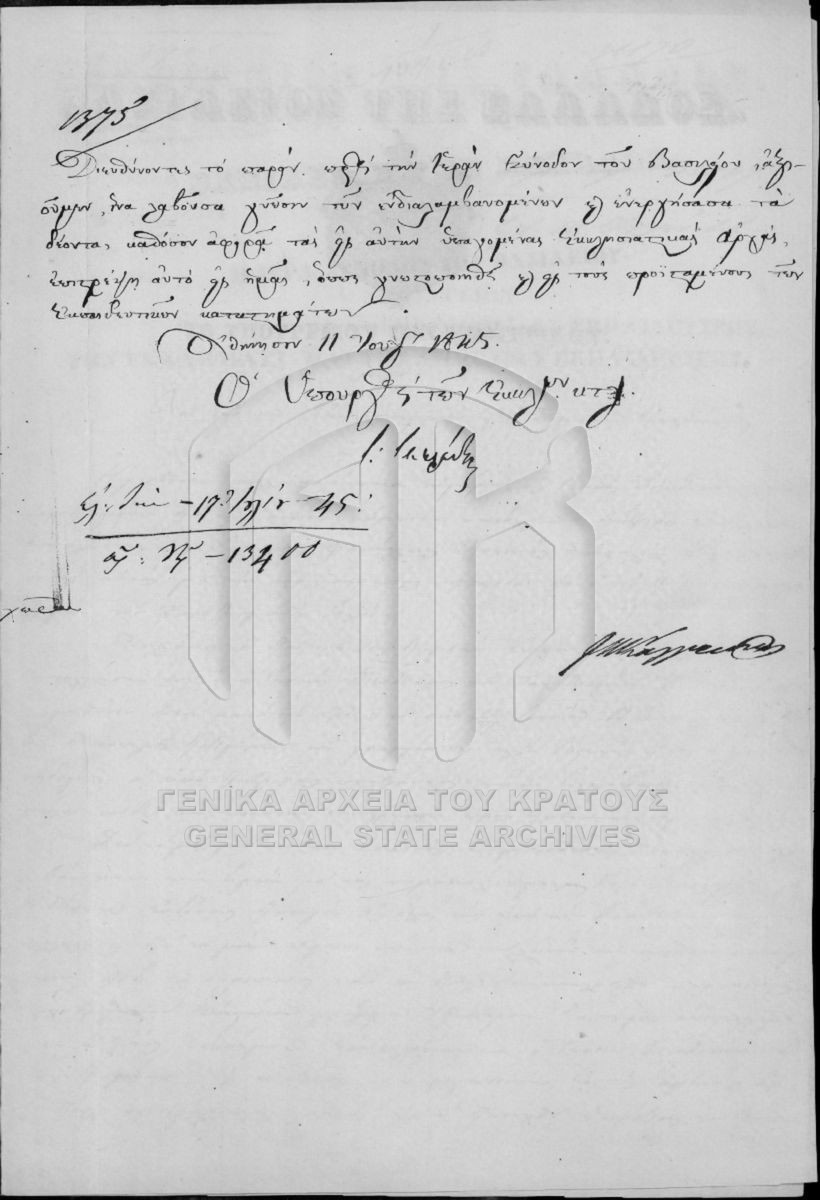 1375
Διευθύνοντες τὸ παρὸν πρὸς τὴν Ἱερὰν Σύνοδον τοῦ Βασιλείου, ἀξι-
οῦμεν, ἵνα λαβοῦσα γνῶσιν τῶν ἐνδιαλαμβανομένων καὶ ἐνεργήσασα τὰ
δέοντα, καθόσον ἀφορᾷ τὰς ὑπ' αὐτὴν ὑπαγομένας Ἐκκλησιαστικὰς Ἀρχὰς,
ἐπιστρέψῃ αὐτὸ πρὸς ἡμᾶς, ὅπως γνωστοποιηθῇ καὶ πρὸς τοὺς προϊσταμένους τῶν
Ἐκπαιδευτικῶν καταστημάτων.
Ἀθήνησιν 11 Ἰουλ. 1845.
Ὁ Ὑπουργὸς τῶν Ἐκκλ/ῶν κτλ.
17 Ἰουλίου 45.
13400
ΓΕΝΙΚΑ ΑΡΧΕΙΑ ΤΟΥ ΚΡΑΤΟΥΣ
GENERAL STATE ARCHIVES